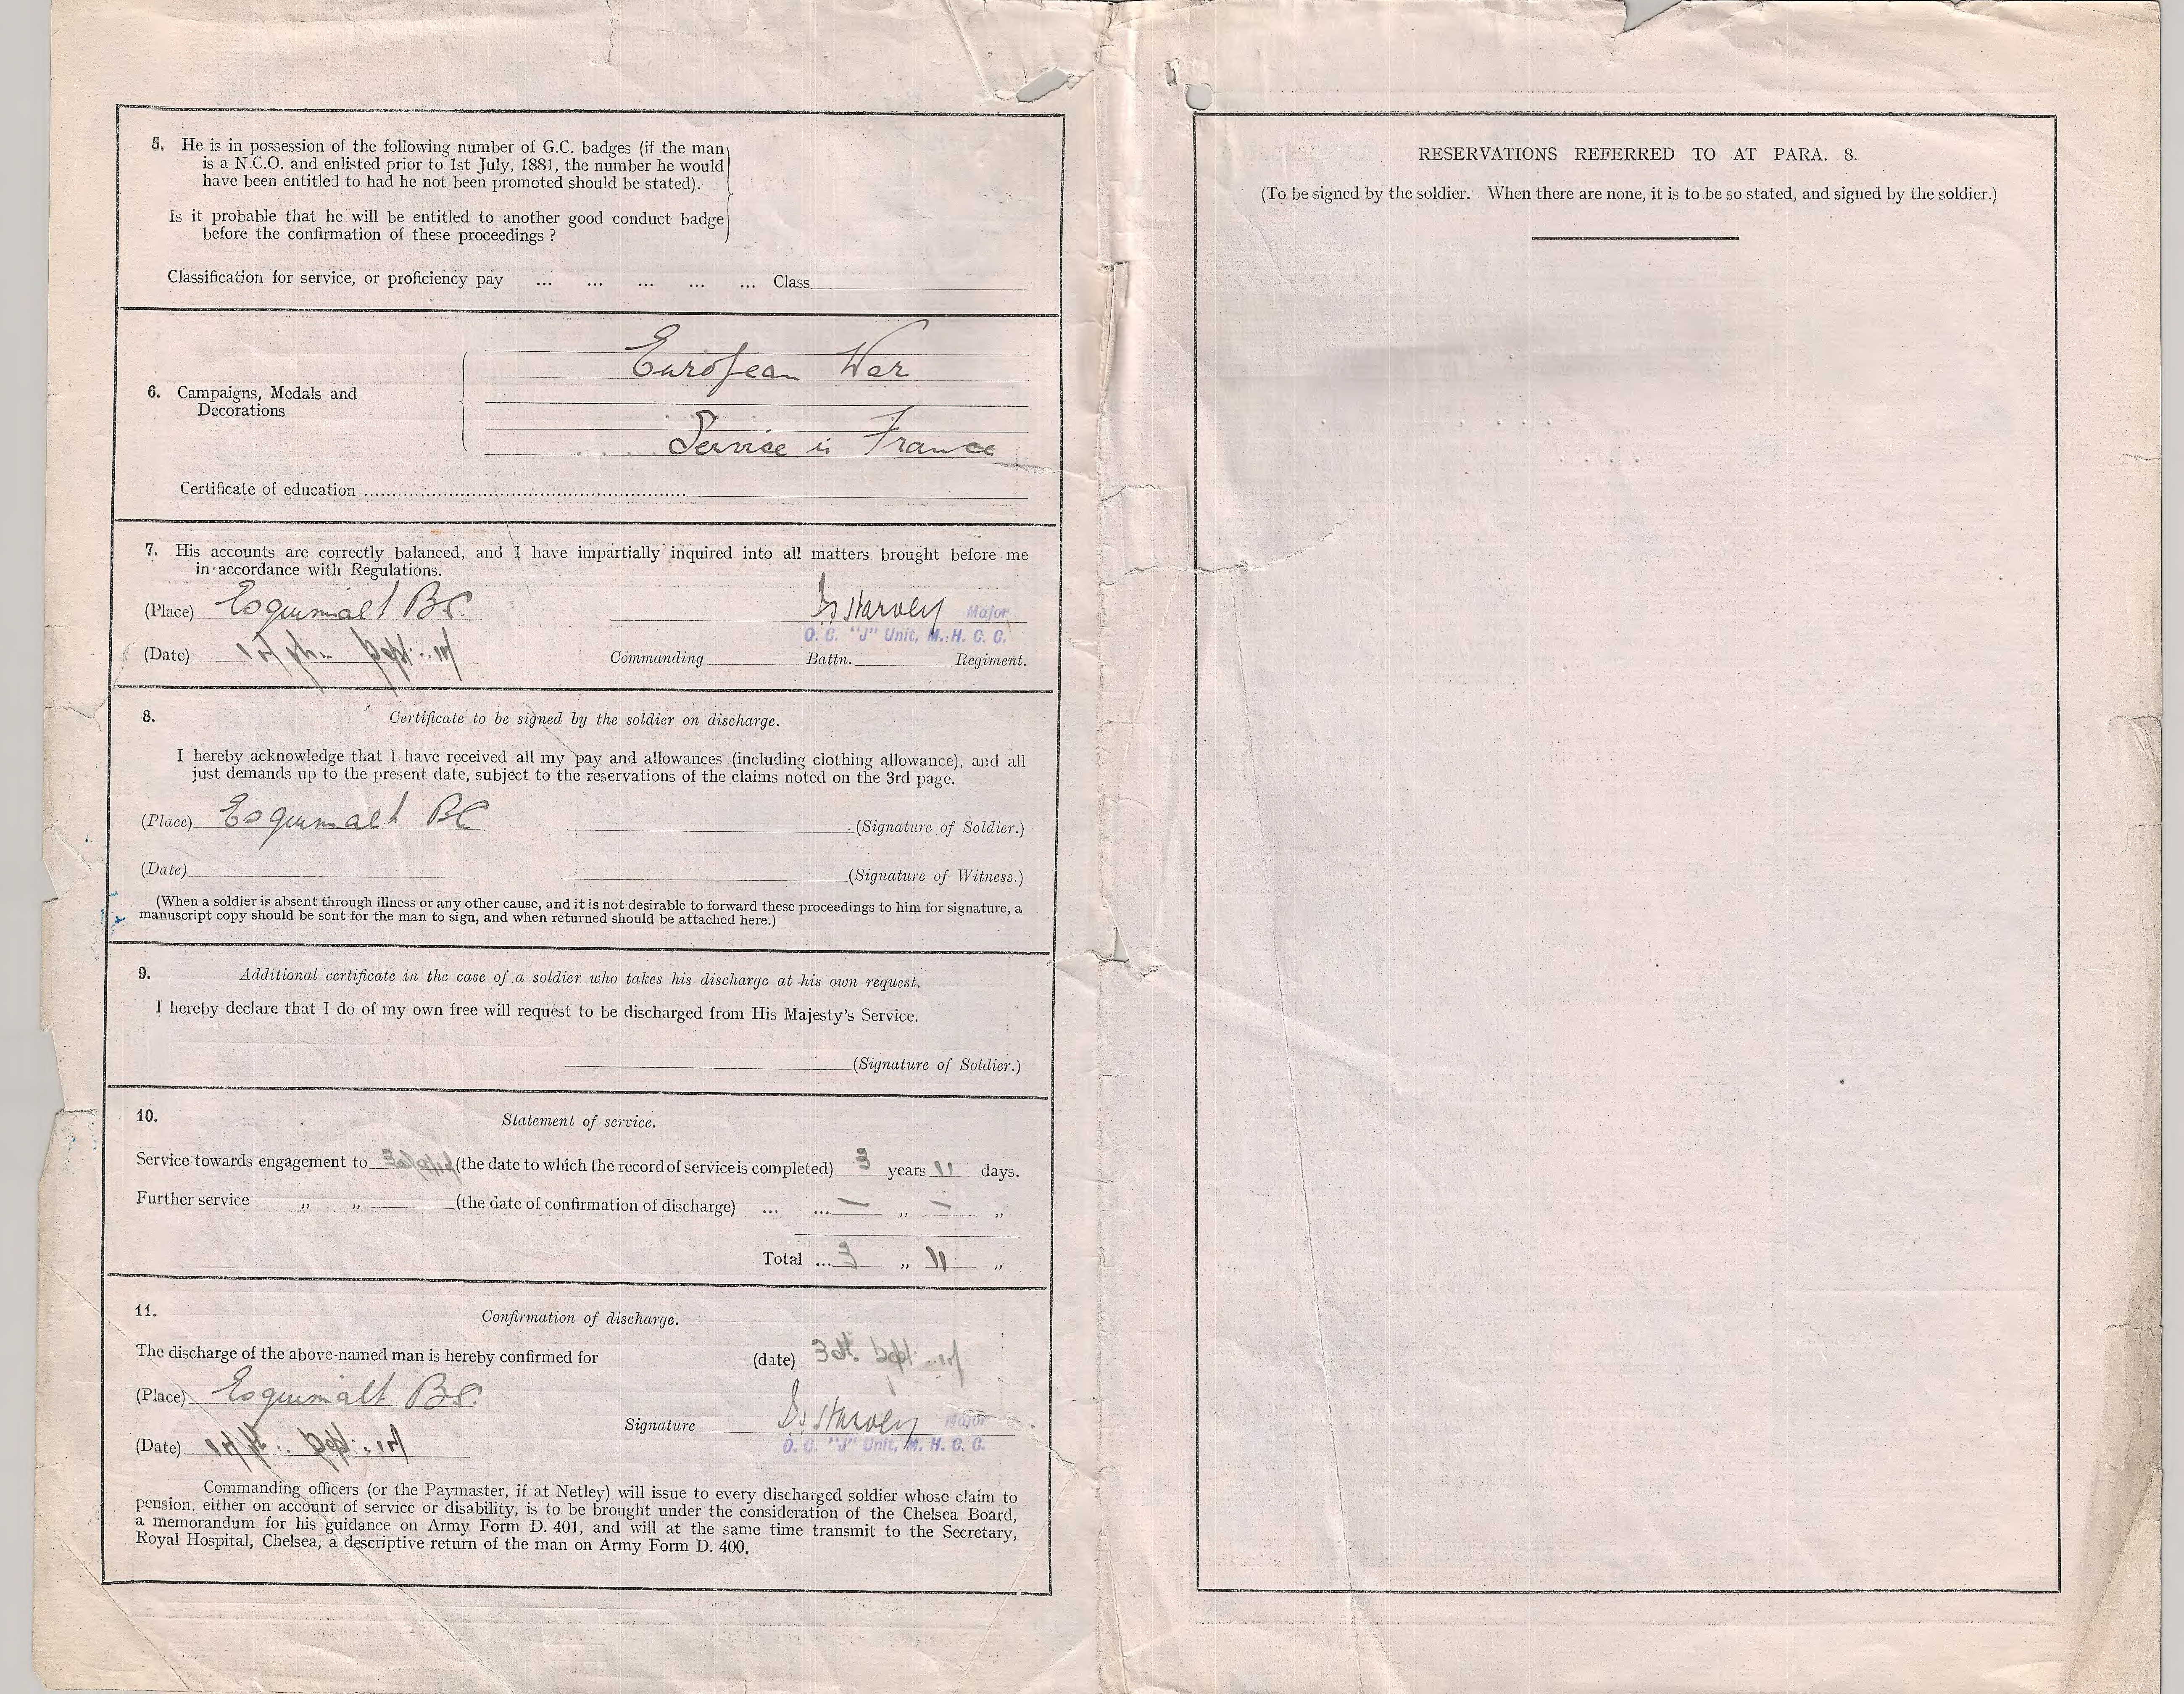 5. He is in possession of the following number of G.C. badges (if the man
is a N.C.O. and enlisted prior to 1st July, 1881, the number he would
have been entitled to had he not been promoted should be stated).
Is it probable that he will be entitled to another good conduct badge
before the confirmation of these proceedings ?
Classification for service, or proficiency pay ... ... ... ... ... Class
European War
6. Campaigns, Medals and
Decorations
Service in France
Certificate of education
7. His accounts are correctly balanced, and I have impartially inquired into all matters brought before me
in accordance with Regulations.
(Place) Esquimalt B.C. Harvey Major
O. C. "J" Unit, M. H. C. C.
(Date) Sept.
Commanding Battn. Regiment.
8. Certificate to be signed by the soldier on discharge.
I hereby acknowledge that I have received all my pay and allowances (including clothing allowance), and all
just demands up to the present date, subject to the reservations of the claims noted on the 3rd page.
(Place) Esquimalt BC (Signature of Soldier.)
(Date) (Signature of Witness.)
(When a soldier is absent through illness or any other cause, and it is not desirable to forward these proceedings to him for signature, a
manuscript copy should be sent for the man to sign, and when returned should be attached here.)
9. Additional certificate in the case of a soldier who takes his discharge at his own request.
I hereby declare that I do of my own free will request to be discharged from His Majesty's Service.
(Signature of Soldier.)
10. Statement of service.
Service towards engagement to (the date to which the record of service is completed) 3 years 11 days.
Further service „ „ (the date of confirmation of discharge) ... ... — „ — „
Total ... 3 „ 11 „
11. Confirmation of discharge.
The discharge of the above-named man is hereby confirmed for (date) 30th. Sept.
(Place) Esquimalt B.C.
Signature Harvey Major
O. C. "J" Unit, M. H. C. C.
(Date) Sept.
Commanding officers (or the Paymaster, if at Netley) will issue to every discharged soldier whose claim to
pension, either on account of service or disability, is to be brought under the consideration of the Chelsea Board,
a memorandum for his guidance on Army Form D. 401, and will at the same time transmit to the Secretary,
Royal Hospital, Chelsea, a descriptive return of the man on Army Form D. 400.
RESERVATIONS REFERRED TO AT PARA. 8.
(To be signed by the soldier. When there are none, it is to be so stated, and signed by the soldier.)